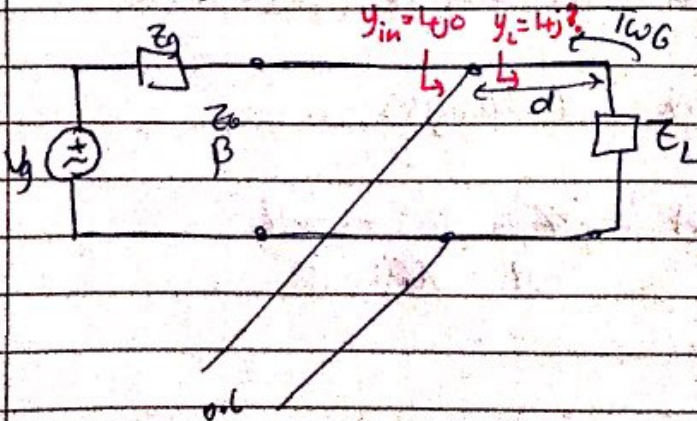 y_in = 1+j0 y_L = 1+j?. TWG
Zg
d
Z0
β
Vg
Z_L
o.c